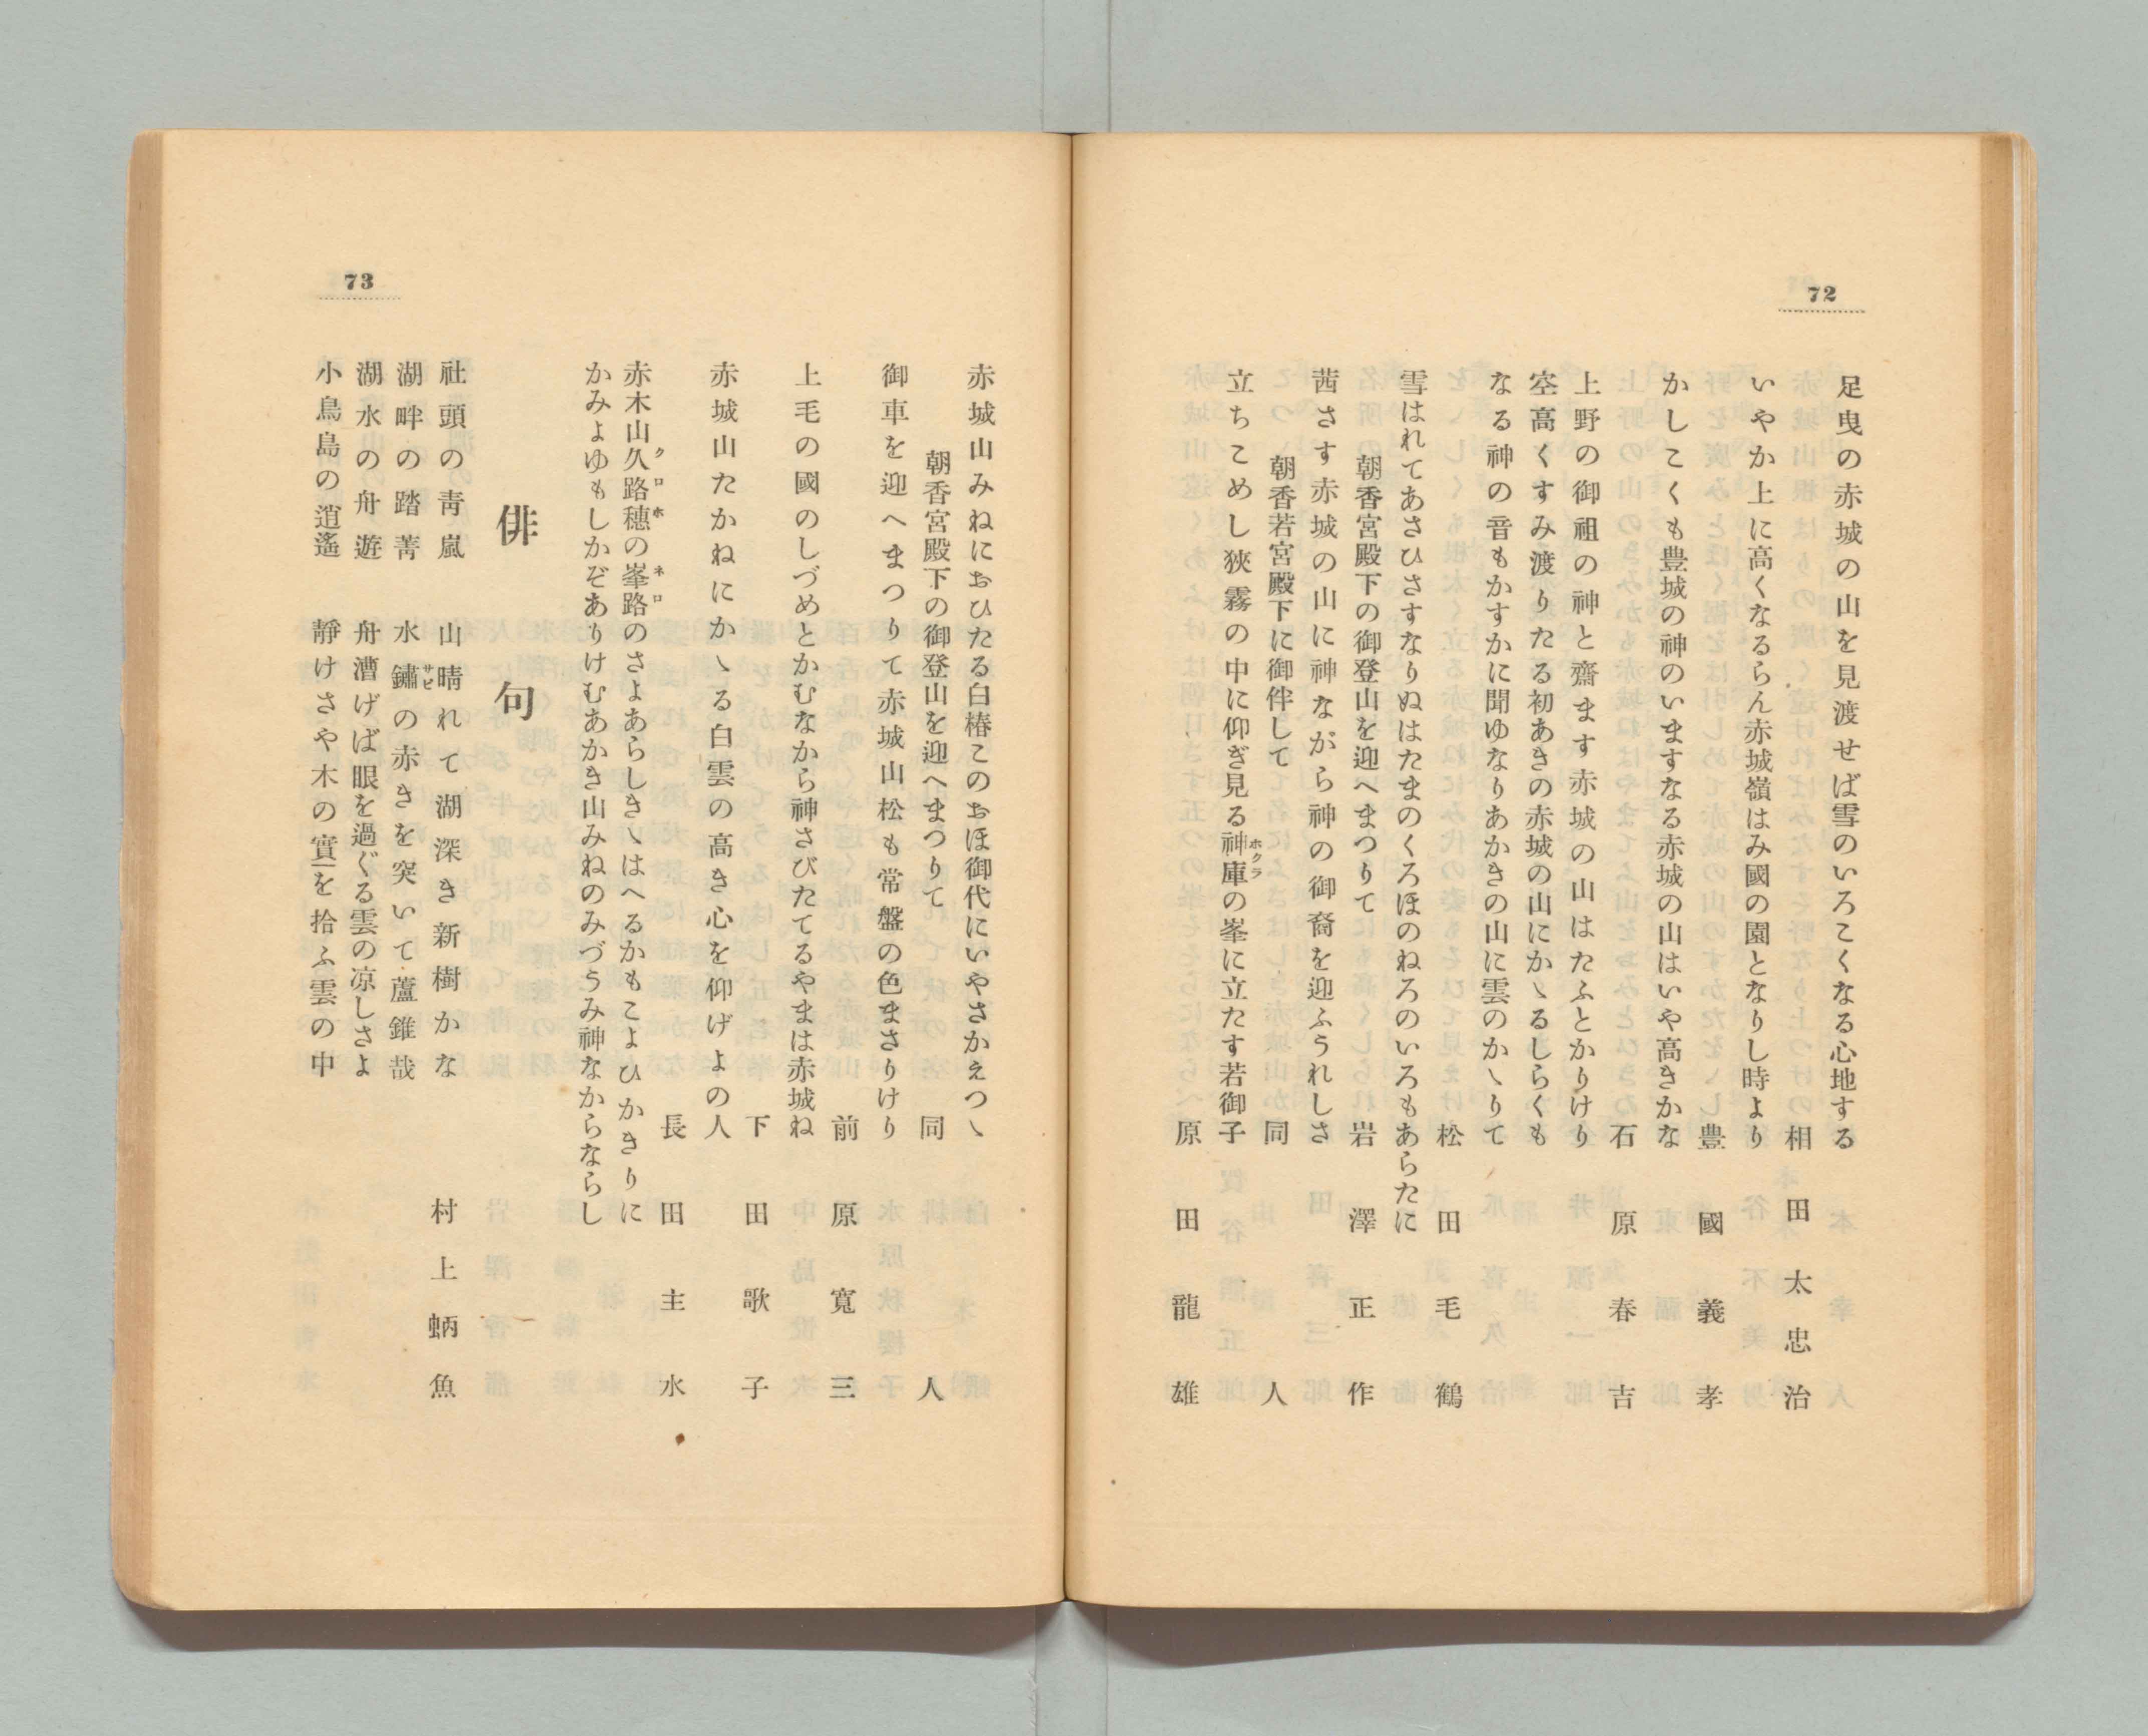 72
足曳の赤城の山を見渡せば雪のいろこくなる心地する
相田太忠治
いやか上に高くなるらん赤城嶺はみ國の園となりし時より
豊國義孝
かしこくも豊城の神のいますなる赤城の山はいや高きかな
石原春吉
上野の御祖の神と齋ます赤城の山はたふとかりけり
空高くすみ渡りたる初あきの赤城の山にかゝるしらくも
なる神の音もかすかに聞ゆなりあかきの山に雲のかゝりて
松田毛鶴
雪はれてあさひさすなりぬはたまのくろほのねろのいろもあらたに
朝香宮殿下の御登山を迎へまつりて
岩澤正作
茜さす赤城の山に神ながら神の御裔を迎ふうれしさ
朝香若宮殿下に御伴して
同人
立ちこめし狹霧の中に仰ぎ見る神庫ホクラの峯に立たす若御子
原田龍雄
73
赤城山みねにおひたる白椿このおほ御代にいやさかえつゝ
朝香宮殿下の御登山を迎へまつりて
同人
御車を迎へまつりて赤城山松も常盤の色まさりけり
前原寛三
上毛の國のしづめとかむなから神さびたてるやまは赤城ね
下田歌子
赤城山たかねにかゝる白雲の高き心を仰げよの人
長田主水
赤木山久路穗クロホの峯路ネロのさよあらしきゝはへるかもこよひかきりに
かみよゆもしかぞありけむあかき山みねのみづうみ神なからならし
俳句
社頭の靑嵐 山晴れて湖深き新樹かな 村上蛃魚
湖畔の踏靑 水鏽サビの赤きを突いて蘆錐哉
湖水の舟遊 舟漕げば眼を過ぐる雲の凉しさよ
小鳥島の逍遙 靜けさや木の實を拾ふ雲の中